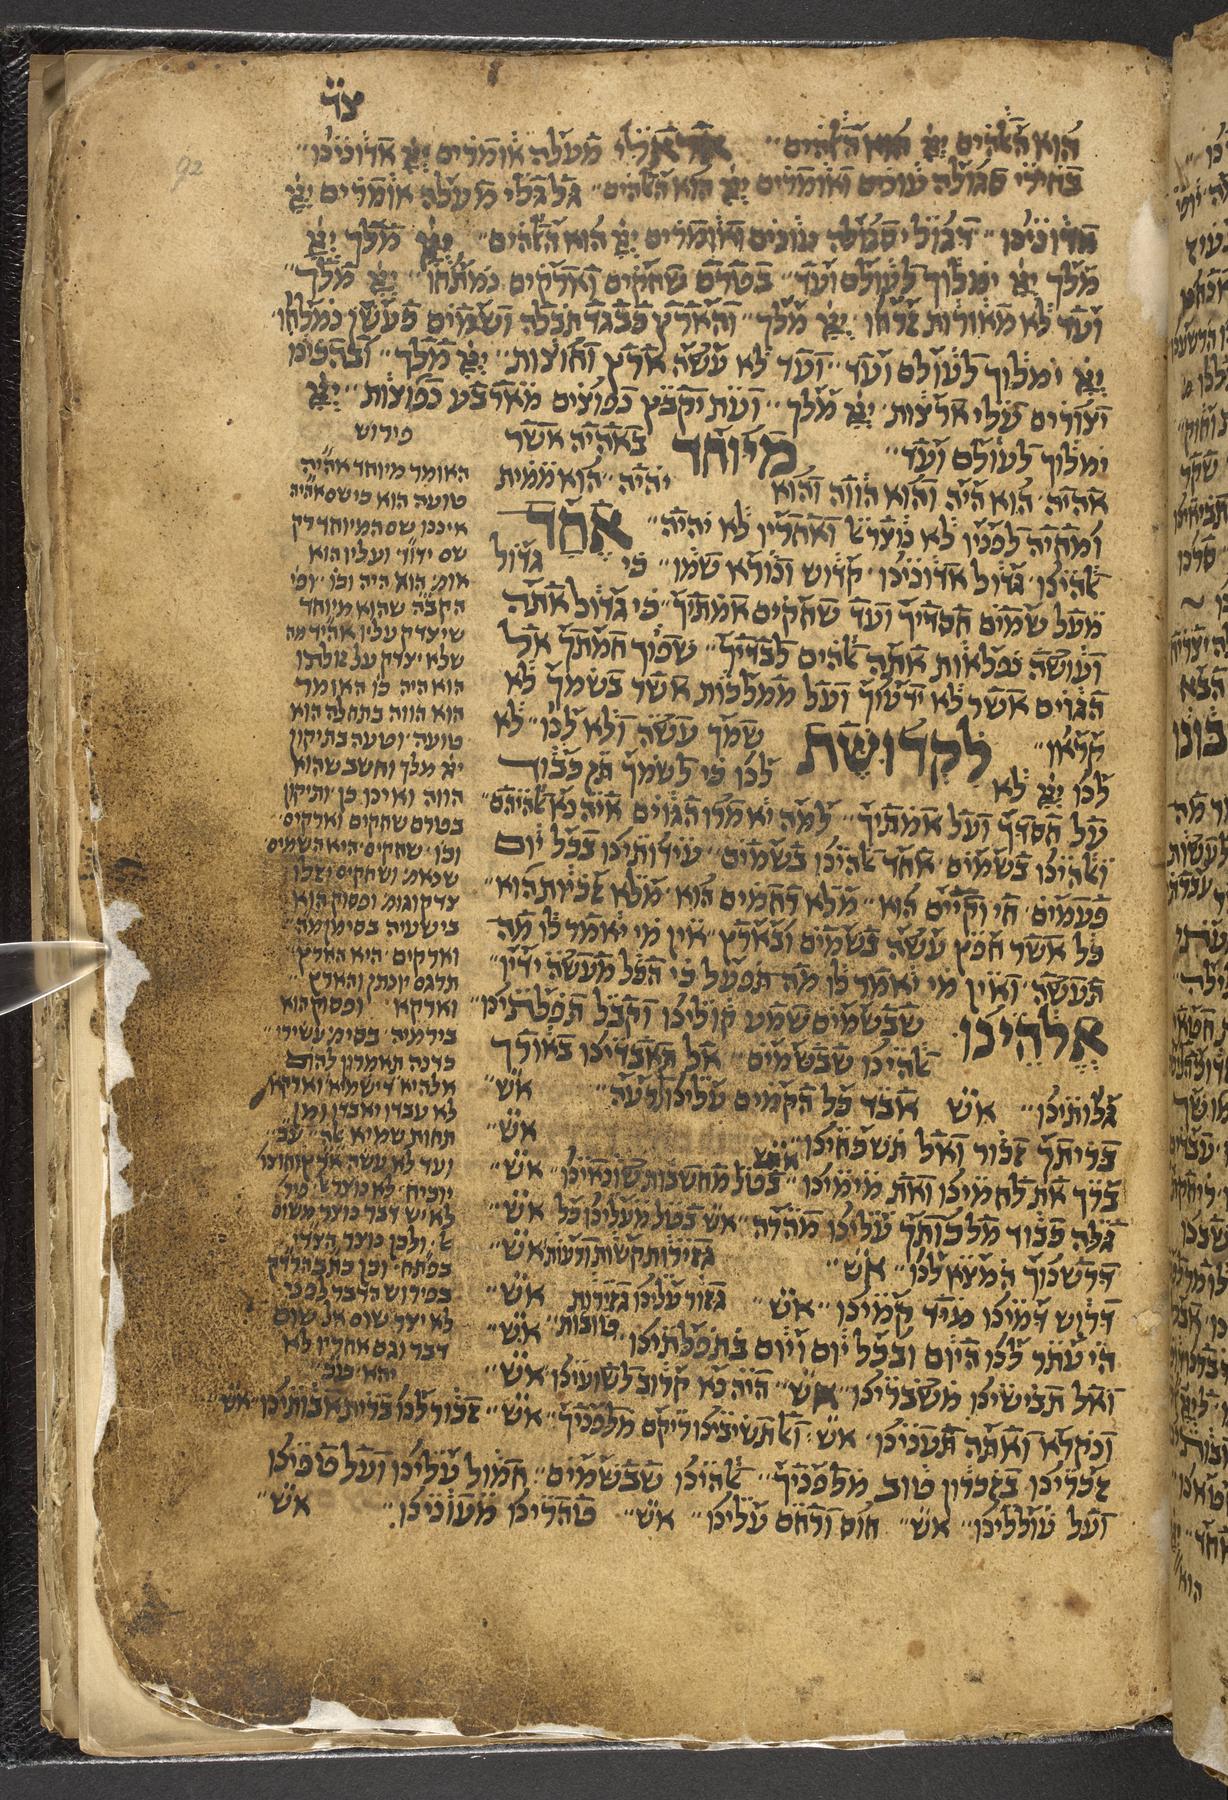 צד
92
הוא האלהים ייי הוא האלהים אראלי מעלה אומרים ייי אדונינו
בחירי סגולה עונים ואומרים ייי הוא האלהים גלגלי מעלה אומרים ייי
אדונינו דגולי סגולה עונים ואומרים ייי הוא האלהים ייי מלך ייי
מלך ייי ימלוך לעולם ועד בטרם שחקים וארקים נמתחו ייי מלך
ועד לא מאורות זרחו ייי מלך והארץ כבגד תבלה ושמים כעשן נמלחו
ייי ימלוך לעולם ועד ועד לא עשה ארץ וחוצות ייי מלך ובהכינו
יצורים עלי ארצות ייי מלך ועת יקבץ נפוצים מארבע כנפות ייי
ימלוך לעולם ועד מיוחד באהיה אשר
אהיה הוא היה והוא הווה והוא יהיה הוא ממית
ומחיה לפניו לא נוצר אל ואחריו לא יהיה אחד
אלהינו גדול אדונינו קדוש ונורא שמו כי גדול
מעל שמים חסדיך ועד שחקים אמתיך כי גדול אתה
ועושה נפלאות אתה אלהים לבדיך שפוך חמתך אל
הגוים אשר לא ידעוך ועל ממלכות אשר בשמך לא
קראו לקדושת שמך עשה ולא לנו לא
לנו ייי לא לנו כי לשמך תן כבוד
על חסדך ועל אמתיך למה יאמרו הגוים איה נא אלהיהם
ואלהינו בשמים אחד אלהינו בשמים עידותינו בכל יום
פעמים חי וקיים הוא מלא רחמים הוא מלא זכיות הוא
כל אשר חפץ עשה בשמים ובארץ אין מי יאמר לו מה
תעשה ואין מי יאמר לו מה תפעל כי הכל מעשה ידיו
אלהינו שבשמים שמע קולינו וקבל תפלתינו
אלהינו שבשמים אל תאבדינו באורך
גלותינו אש אבד כל הקמים עלינו לרעה אש
בריתך זכור ואל תשכחינו אש
ברך את לחמינו ואת מימינו בטל מחשבות שונאינו אש
גלה כבוד מלכותך עלינו מהרה אש בטל מעלינו כל אש
גזירות קשות ורעות אש
דרשנוך המצא לנו אש
דרוש דמינו מיד קמינו אש גזור עלינו גזירות אש
טובות אש
העתר לנו היום ובכל יום ויום בתפלתינו
ואל תבישינו משברינו אש היה נא קרוב לשועינו אש
ונקרא ואתה תענינו אש ואל תשיבינו ריקם מלפניך אש זכור לנו ברית אבותינו אש
זכרינו בזכרון טוב מלפניך אלהינו שבשמים חמול עלינו ועל טפינו
ועל עוללינו אש חוס ורחם עלינו אש טהרינו מעונינו אש
פירוש
האומר מיוחד אהיה
טועה הוא כי שם אהיה
איננו שם המיוחד רק
שם ידוד ועליו הוא
אומ' הוא היה וכו'
הקבה שהוא מיוחד
הוא היה כו' האומר
הוא הווה בתחלה הוא
טועה וטעה בתיקון
ייי מלך וחשב שהוא
הווה ואינו כן ותיקון
בטרם שחקים וארקים
וכו' שחקים היא השמים
שנאמ' ושחקים יזלו
צדק וגומ' ופסוק הוא
בישעיה בסימן מה
וארקים היא הארץ
תרגם יונתן והארץ
וארקא ופסוק הוא
בירמיה בסימ' עשירי
כדנה תאמרון להום
אלהיא די שמיא וארקא
לא עבדו יאבדו מן
תחות שמיא אלה
ועד לא עשה ארץ וחוצו'
בפירוש הדבר לפני
לא יצר שום אל שום
דבר וגם אחריו לא
יהא